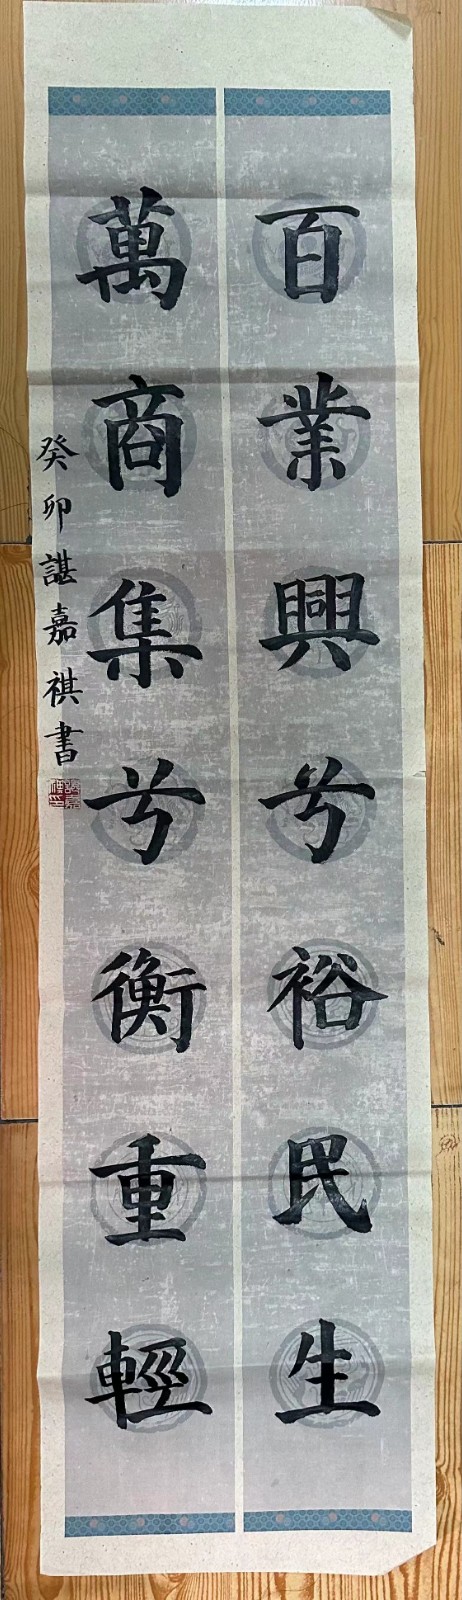 百業興兮裕民生
萬商集兮衡重輕
癸卯諶嘉祺書